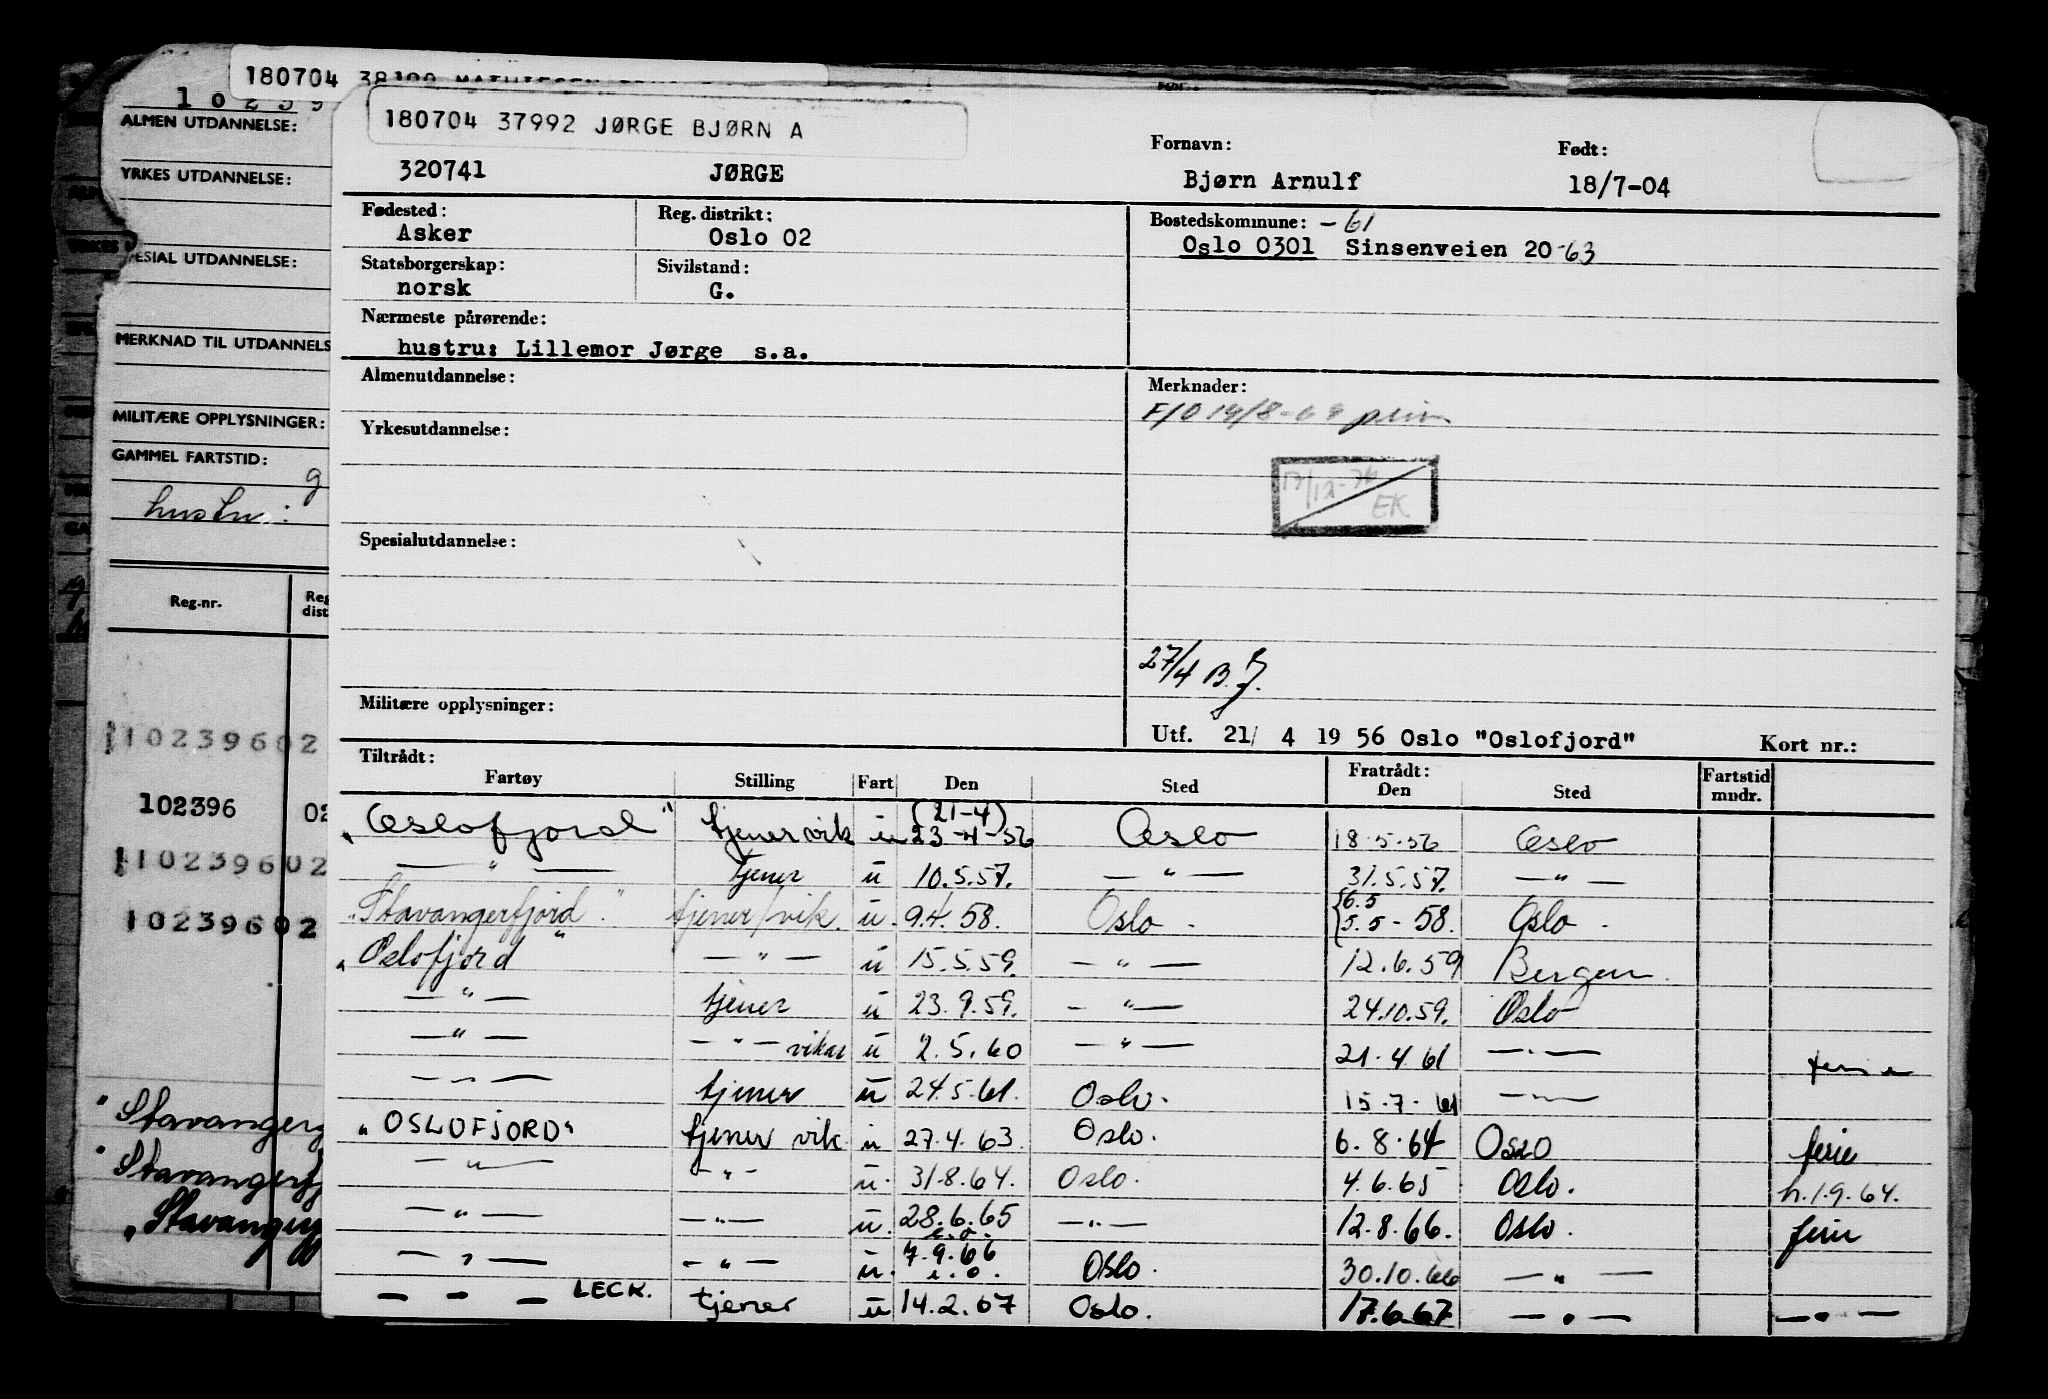 180704 38100 MATHIESEN
10239
ALMEN UTDANNELSE:
YRKES UTDANNELSE:
SIAL UTDANNELSE:
MERKNAD TIL UTDANNELS
MILITÆRE OPPLYSNINGER:
GAMMEL FARTSTID:
g
hustru:
Reg.-nr. Reg dist
10239602
102396 02
10239602
10239602
"Stavangerf
"Stavangerfj
"Stavangerf
180704 37992 JØRGE BJØRN A
Fornavn: Født:
320741 JØRGE Bjørn Arnulf 18/7-04
Fødested: Reg. distrikt: Bostedskommune: -61
Asker Oslo 02 Oslo 0301 Sinsenveien 20 -63
Statsborgerskap: Sivilstand:
norsk G.
Nærmeste pårørende:
hustru: Lillemor Jørge s.a.
Almenutdannelse: Merknader:
F/O 14/8-69
Yrkesutdannelse:
EK
Spesialutdannelse:
27/4 B.J.
Militære opplysninger:
Utf. 21/ 4 19 56 Oslo "Oslofjord" Kort nr.:
Tiltrådt: Fratrådt: Fartstid
Fartøy Stilling Fart Den Sted Den Sted mndr.
(21-4)
"Oslofjord" tjener vik u 23-4-56 Oslo 18.5.56 Oslo
— " — tjener u 10.5.57. — " — 31.5.57. — " —
"Stavangerfjord." tjener/vik. u. 9.4.58. Oslo. {6.5 5.5-58. Oslo.
"Oslofjord" — " — u 15.5.59. — " — 12.6.59 Bergen.
— " — tjener u 23.9.59. — " — 24.10.59. Oslo
— " — — " — vikar u 2.5.60 — " — 21.4.61 — " —
— " — tjener u 24.5.61. Oslo. 15.7.61 — " —
"OSLOFJORD" tjener vik. u 27.4.63. Oslo. 6.8.64 Oslo ferie
— " — — " — u. 31.8.64. Oslo. 4.6.65 Oslo. h.1.9.64.
— " — — " — u. 28.6.65 — " — 12.8.66. Oslo. ferie
e.o.
— " — — " — u. 7.9.66 Oslo. 30.10.66 — " —
e.o.
— — — LECK. tjener u 14.2.67 Oslo. 17.6.67 — " — — " —